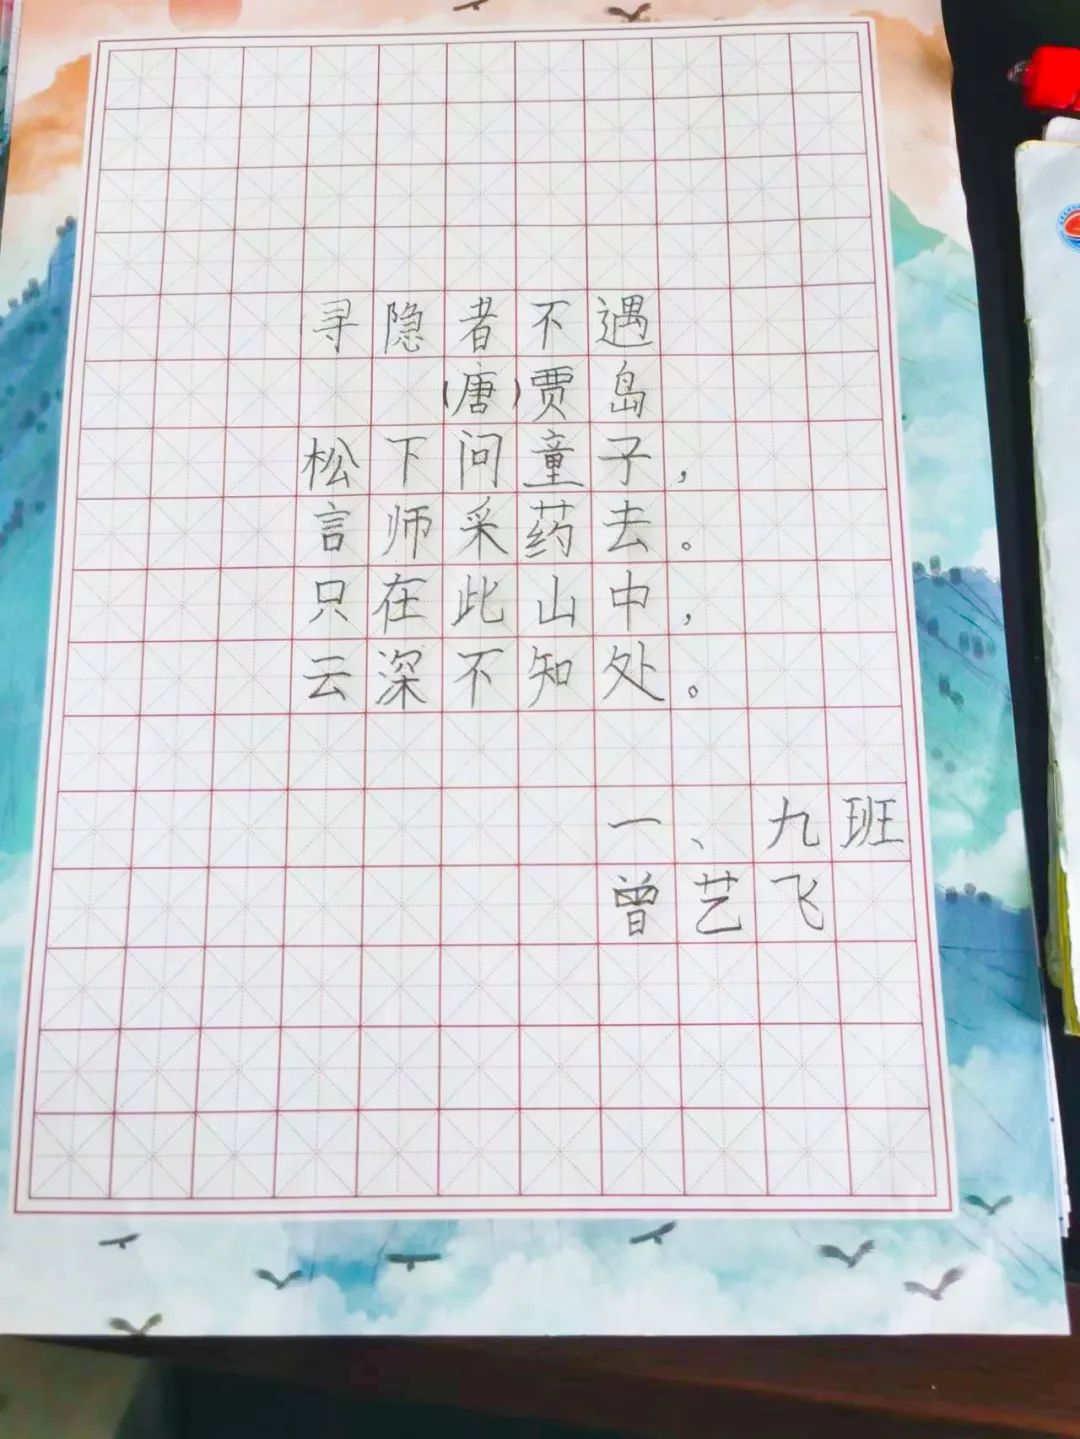 寻隐者不遇
(唐)贾岛
松下问童子，
言师采药去。
只在此山中，
云深不知处。
一、九班
曾艺飞